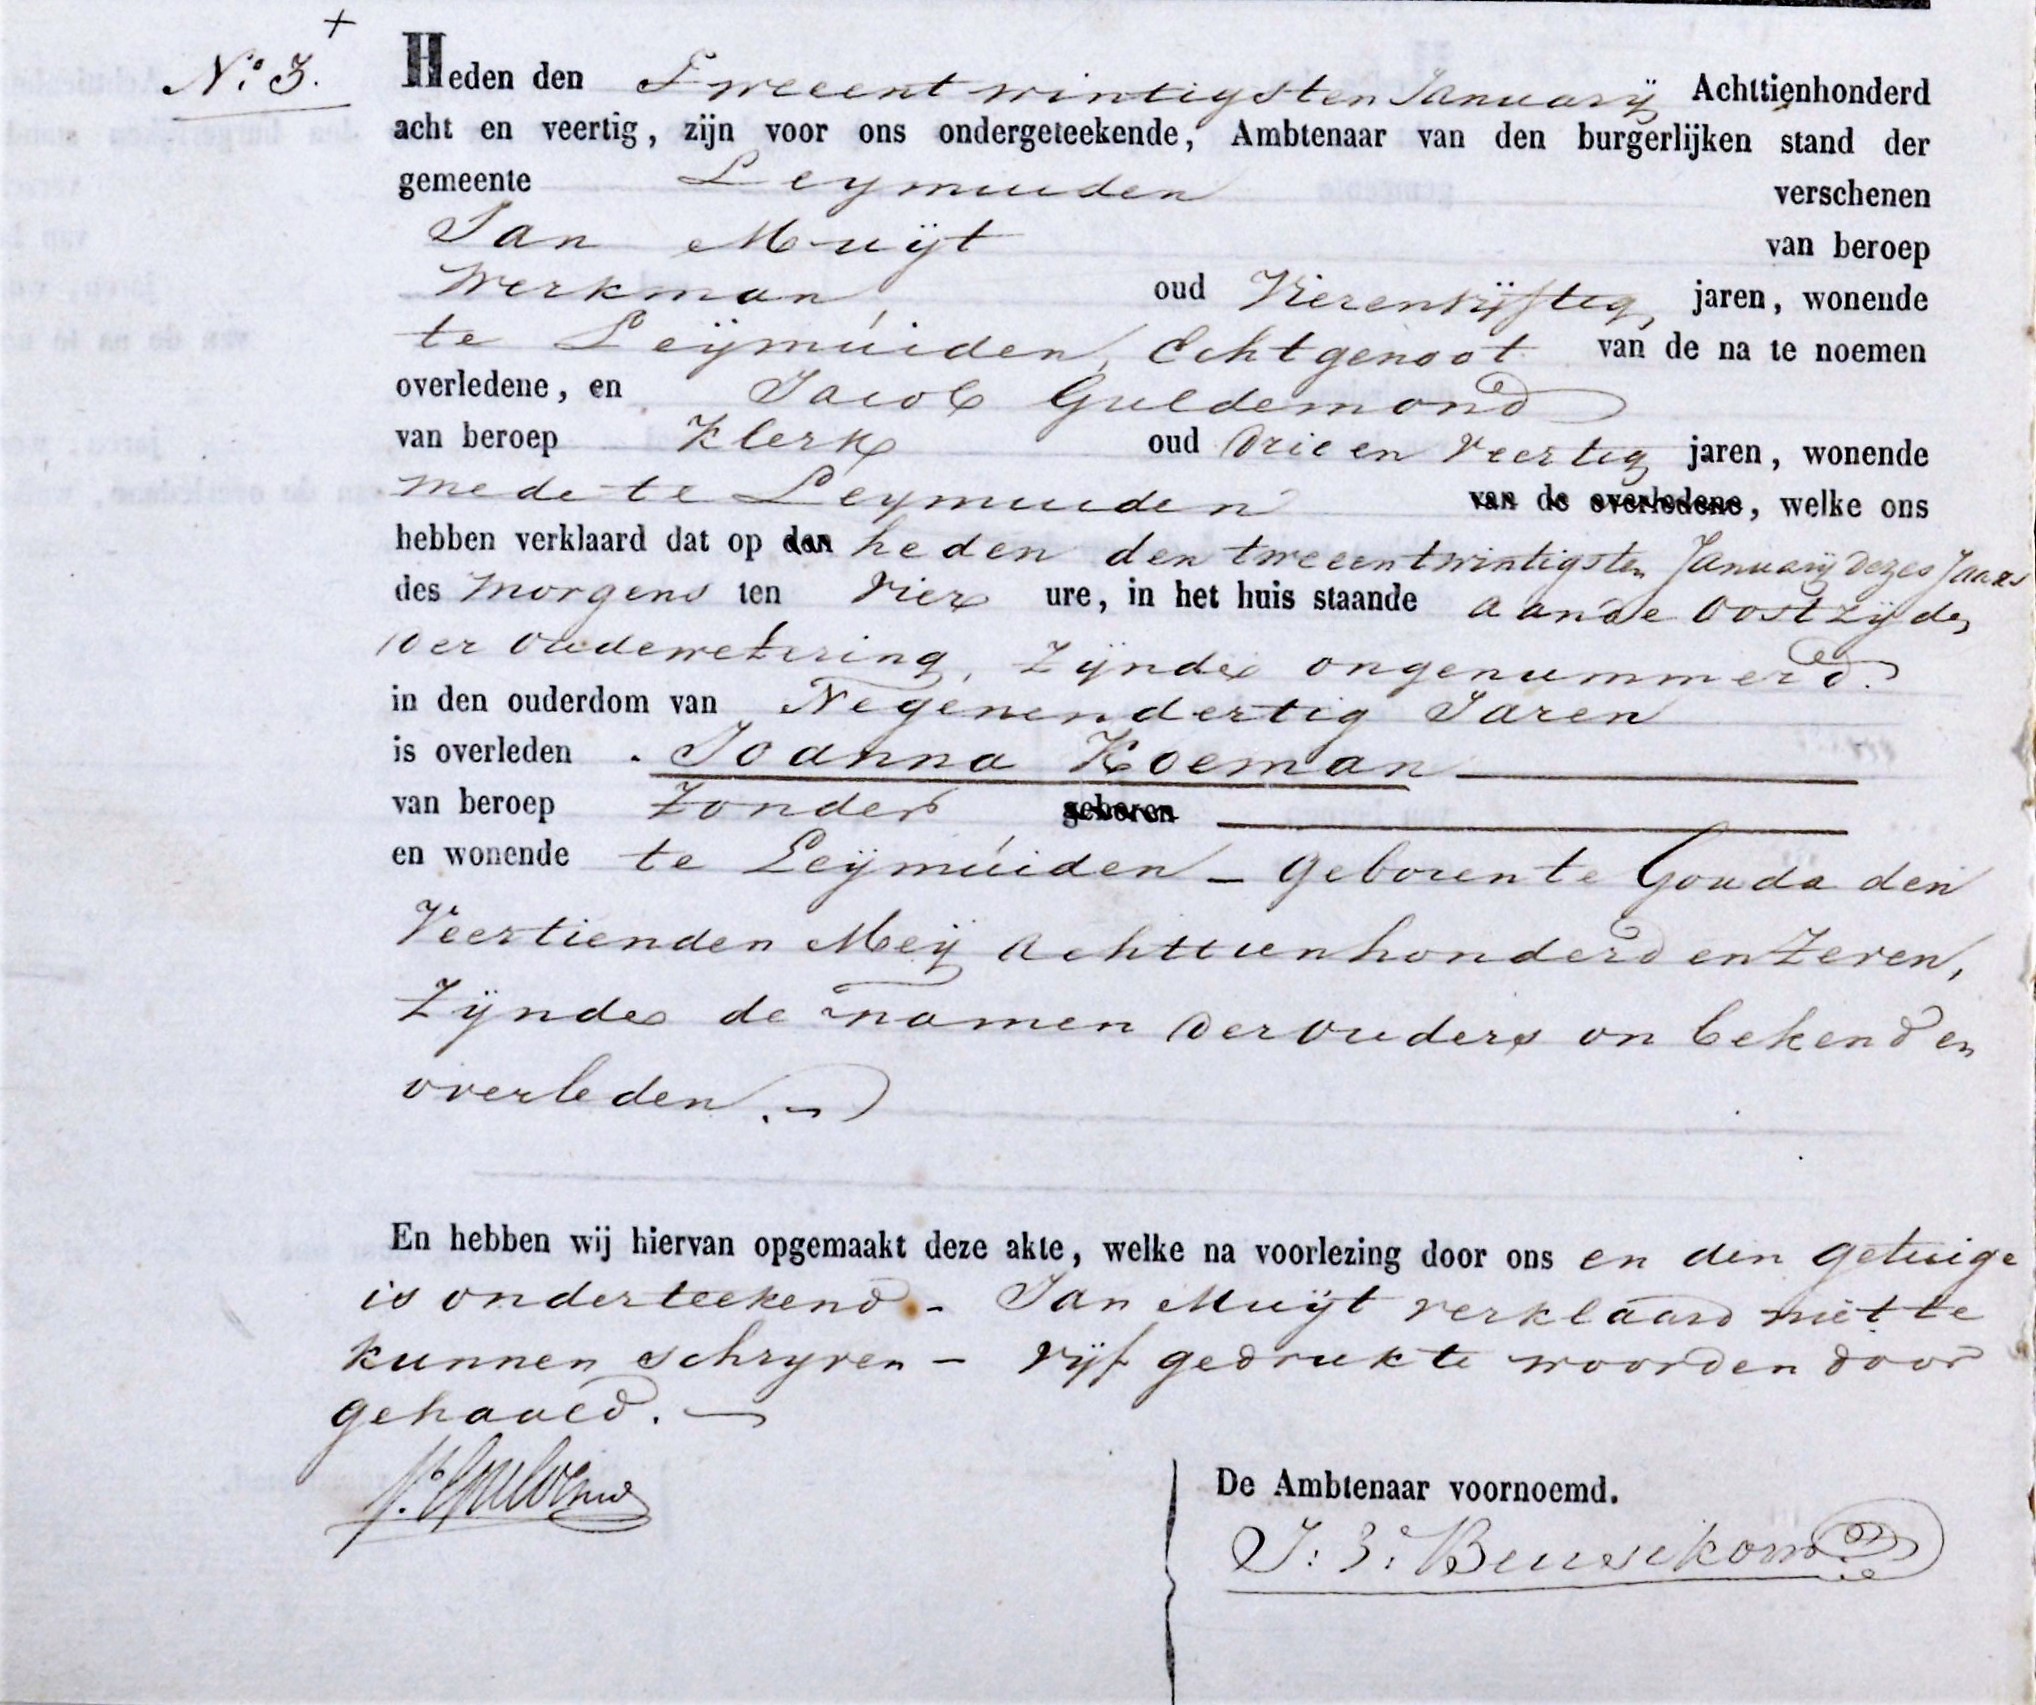 +
N.o 3.
Heden den Tweeentwintigsten Januarij Achttienhonderd
acht en veertig, zijn voor ons ondergeteekende, Ambtenaar van den burgerlijken stand der
gemeente Leymuiden verschenen
Jan Muijt van beroep
Werkman, oud Vierenvijftig, jaren, wonende
te Leijmuiden, Echtgenoot van de na te noemen
overledene, en Jacob Guldemond
van beroep Klerk oud drie en veertig jaren, wonende
mede te Leymuiden van de overledene, welke ons
hebben verklaard dat op den heden den tweeentwintigsten Januarij dezes Jaars
des morgens ten vier ure, in het huis staande aan de Oostzijde,
der oudewetering, zijnde ongenummerd.
in den ouderdom van Negenendertig Jaren
is overleden . Joanna Koeman
van beroep zonder geboren
en wonende te Leijmuiden - geboren te Gouda den
Veertienden Meij achttienhonderd en zeven,
zijnde de namen der ouders onbekend en
overleden.
En hebben wij hiervan opgemaakt deze akte, welke na voorlezing door ons en den getuige
is onderteekend - Jan Muijt verklaard niet te
kunnen schryven - vijf gedrukte woorden door
gehaald. -
De Ambtenaar voornoemd.